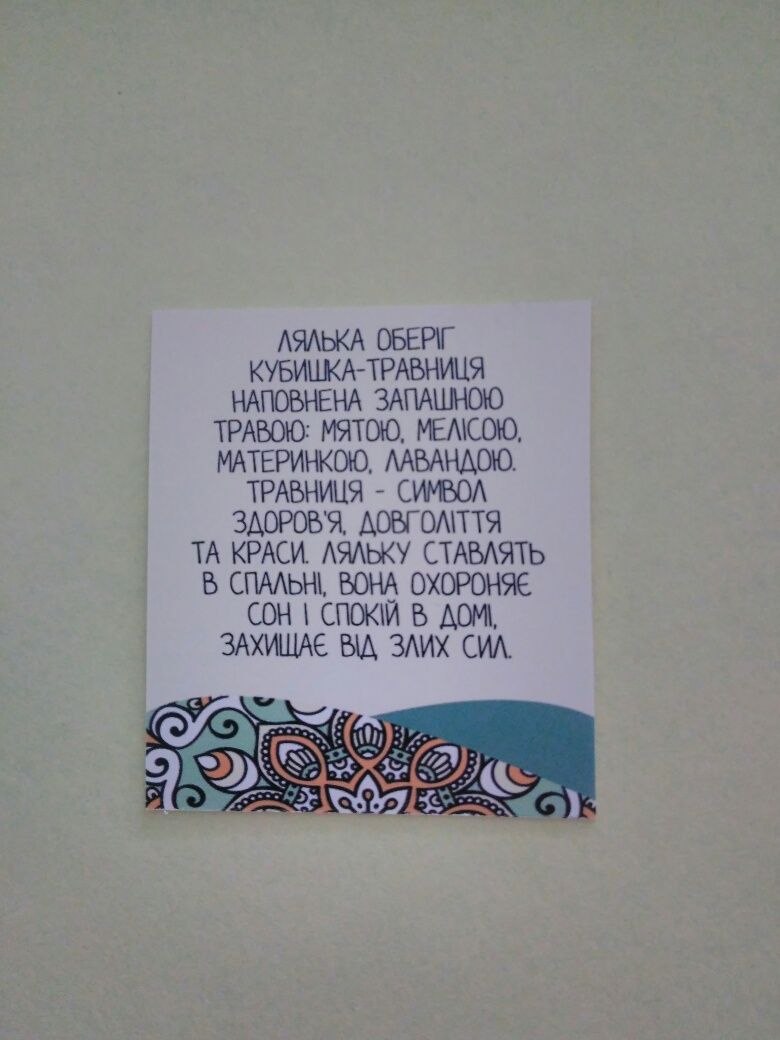 ЛЯЛЬКА ОБЕРІГ
КУБИШКА-ТРАВНИЦЯ
НАПОВНЕНА ЗАПАШНОЮ
ТРАВОЮ: МЯТОЮ, МЕЛІСОЮ,
МАТЕРИНКОЮ, ЛАВАНДОЮ.
ТРАВНИЦЯ - СИМВОЛ
ЗДОРОВ'Я, ДОВГОЛІТТЯ
ТА КРАСИ. ЛЯЛЬКУ СТАВЛЯТЬ
В СПАЛЬНІ, ВОНА ОХОРОНЯЄ
СОН І СПОКІЙ В ДОМІ,
ЗАХИЩАЄ ВІД ЗЛИХ СИЛ.